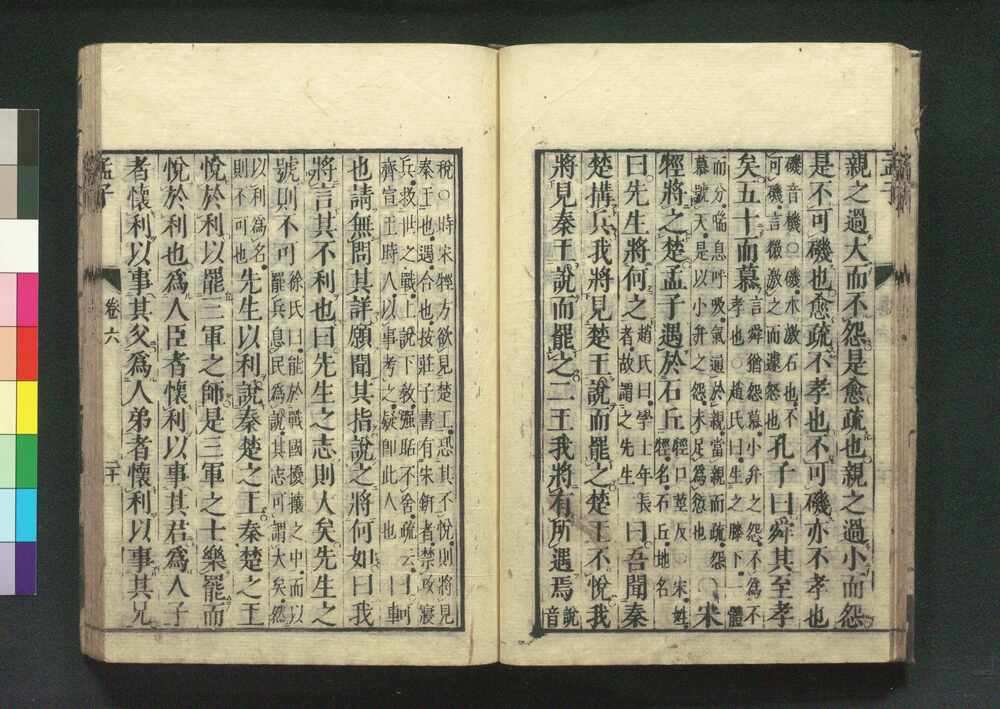 孟子
親之過大而不怨是愈疏也親之過小而怨
是不可磯也愈疏不孝也不可磯亦不孝也
磯音機○磯水激石也不
可磯言微激之而遽怒也
孔子曰舜其至孝
矣五十而慕
言舜猶怨慕小弁之怨不爲不
孝也○趙氏曰生之膝下一體
而分喘息呼吸氣通於親當親而疏怨
慕號天是以小弁之怨未足爲愆也
○宋
牼將之楚孟子遇於石丘
牼口莖反○宋姓
牼名石丘地名
曰先生將何之
趙氏曰學士年長
者故謂之先生
曰吾聞秦
楚搆兵我將見楚王說而罷之楚王不悅我
將見秦王說而罷之二王我將有所遇焉
說
音
稅○時宋牼方欲見楚王恐其不悅則將見
秦王也遇合也按莊子書有宋鈃者禁攻寢
兵救世之戰上說下教强聒不舍疏云
齊宣王時人以事考之疑即此人也
曰軻
也請無問其詳願聞其指說之將何如曰我
將言其不利也曰先生之志則大矣先生之
號則不可
徐氏曰能於戰國擾攘之中而以
罷兵息民爲說其志可謂大矣然
以利爲名
則不可也
先生以利說秦楚之王秦楚之王
悅於利以罷三軍之師是三軍之士樂罷而
悅於利也爲人臣者懷利以事其君爲人子
者懷利以事其父爲人弟者懷利以事其兄
孟子
卷六
二十